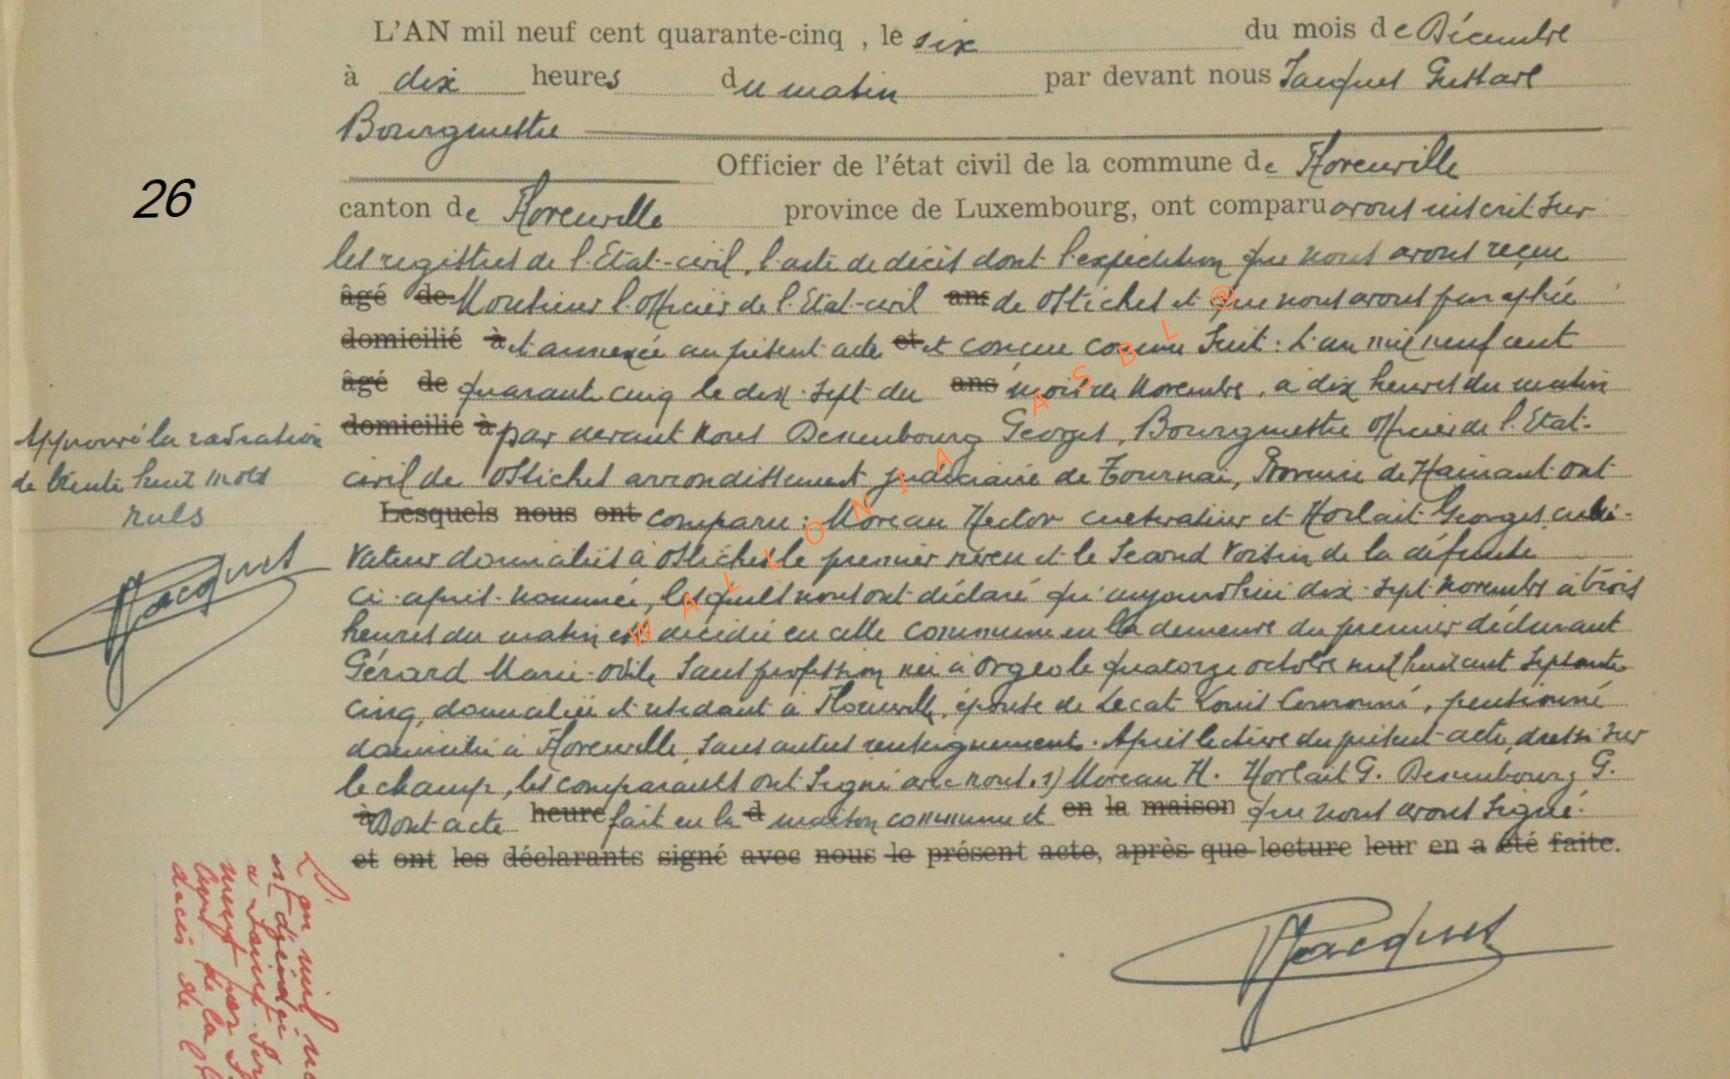 L'AN mil neuf cent quarante-cinq, le six du mois de Décembre
à dix heures du matin par devant nous Jacques Gustave
Bourgmestre
Officier de l'état civil de la commune de Florenville
26
canton de Florenville province de Luxembourg, ont comparu avons inscrit sur
les registres de l'Etat-civil, l'acte de décès dont l'expédition que nous avons reçue
âgé de Monsieur l'Officier de l'Etat-civil ans de Ostiches et que nous avons paraphée
domicilié à et annexée au présent acte et et conçue comme suit : L'an mil neuf cent
âgé de quarante cinq le dix-sept du ans mois de Novembre, à dix heures du matin
domicilié à par devant Nous Desenbourg Georges, Bourgmestre Officier de l'Etat-
civil de Ostiches arrondissement judiciaire de Tournai, Province de Hainaut ont
Lesquels nous ont comparu : Moreau Hector cultivateur et Horlait Georges culti-
vateur domiciliés à Ostiches le premier neveu et le second voisin de la défunte
ci-après nommée, lesquels nous ont déclaré qu'aujourd'hui dix-sept novembre à trois
heures du matin est décédée en cette commune en la demeure du premier déclarant
Gérard Marie-Odile sans profession née à Orgeo le quatorze octobre mil huit cent septante
cinq, domiciliée et résidant à Florenville, épouse de Lecat Louis , pensionné
domicilié à Florenville, sans autres renseignements. Après lecture du présent acte, dressé sur
le champ, les comparants ont signé avec nous. s) Moreau H. Horlait G. Desenbourg G.
à Dont acte heure fait en la d maison commune et en la maison que nous avons signé.
et ont les déclarants signé avec nous le présent acte, après que lecture leur en a été faite.
Approuvé la radiation
de trente huit mots
nuls
Jacques
Jacques
WALLONIA ASBL ®
L'an mil
décès de